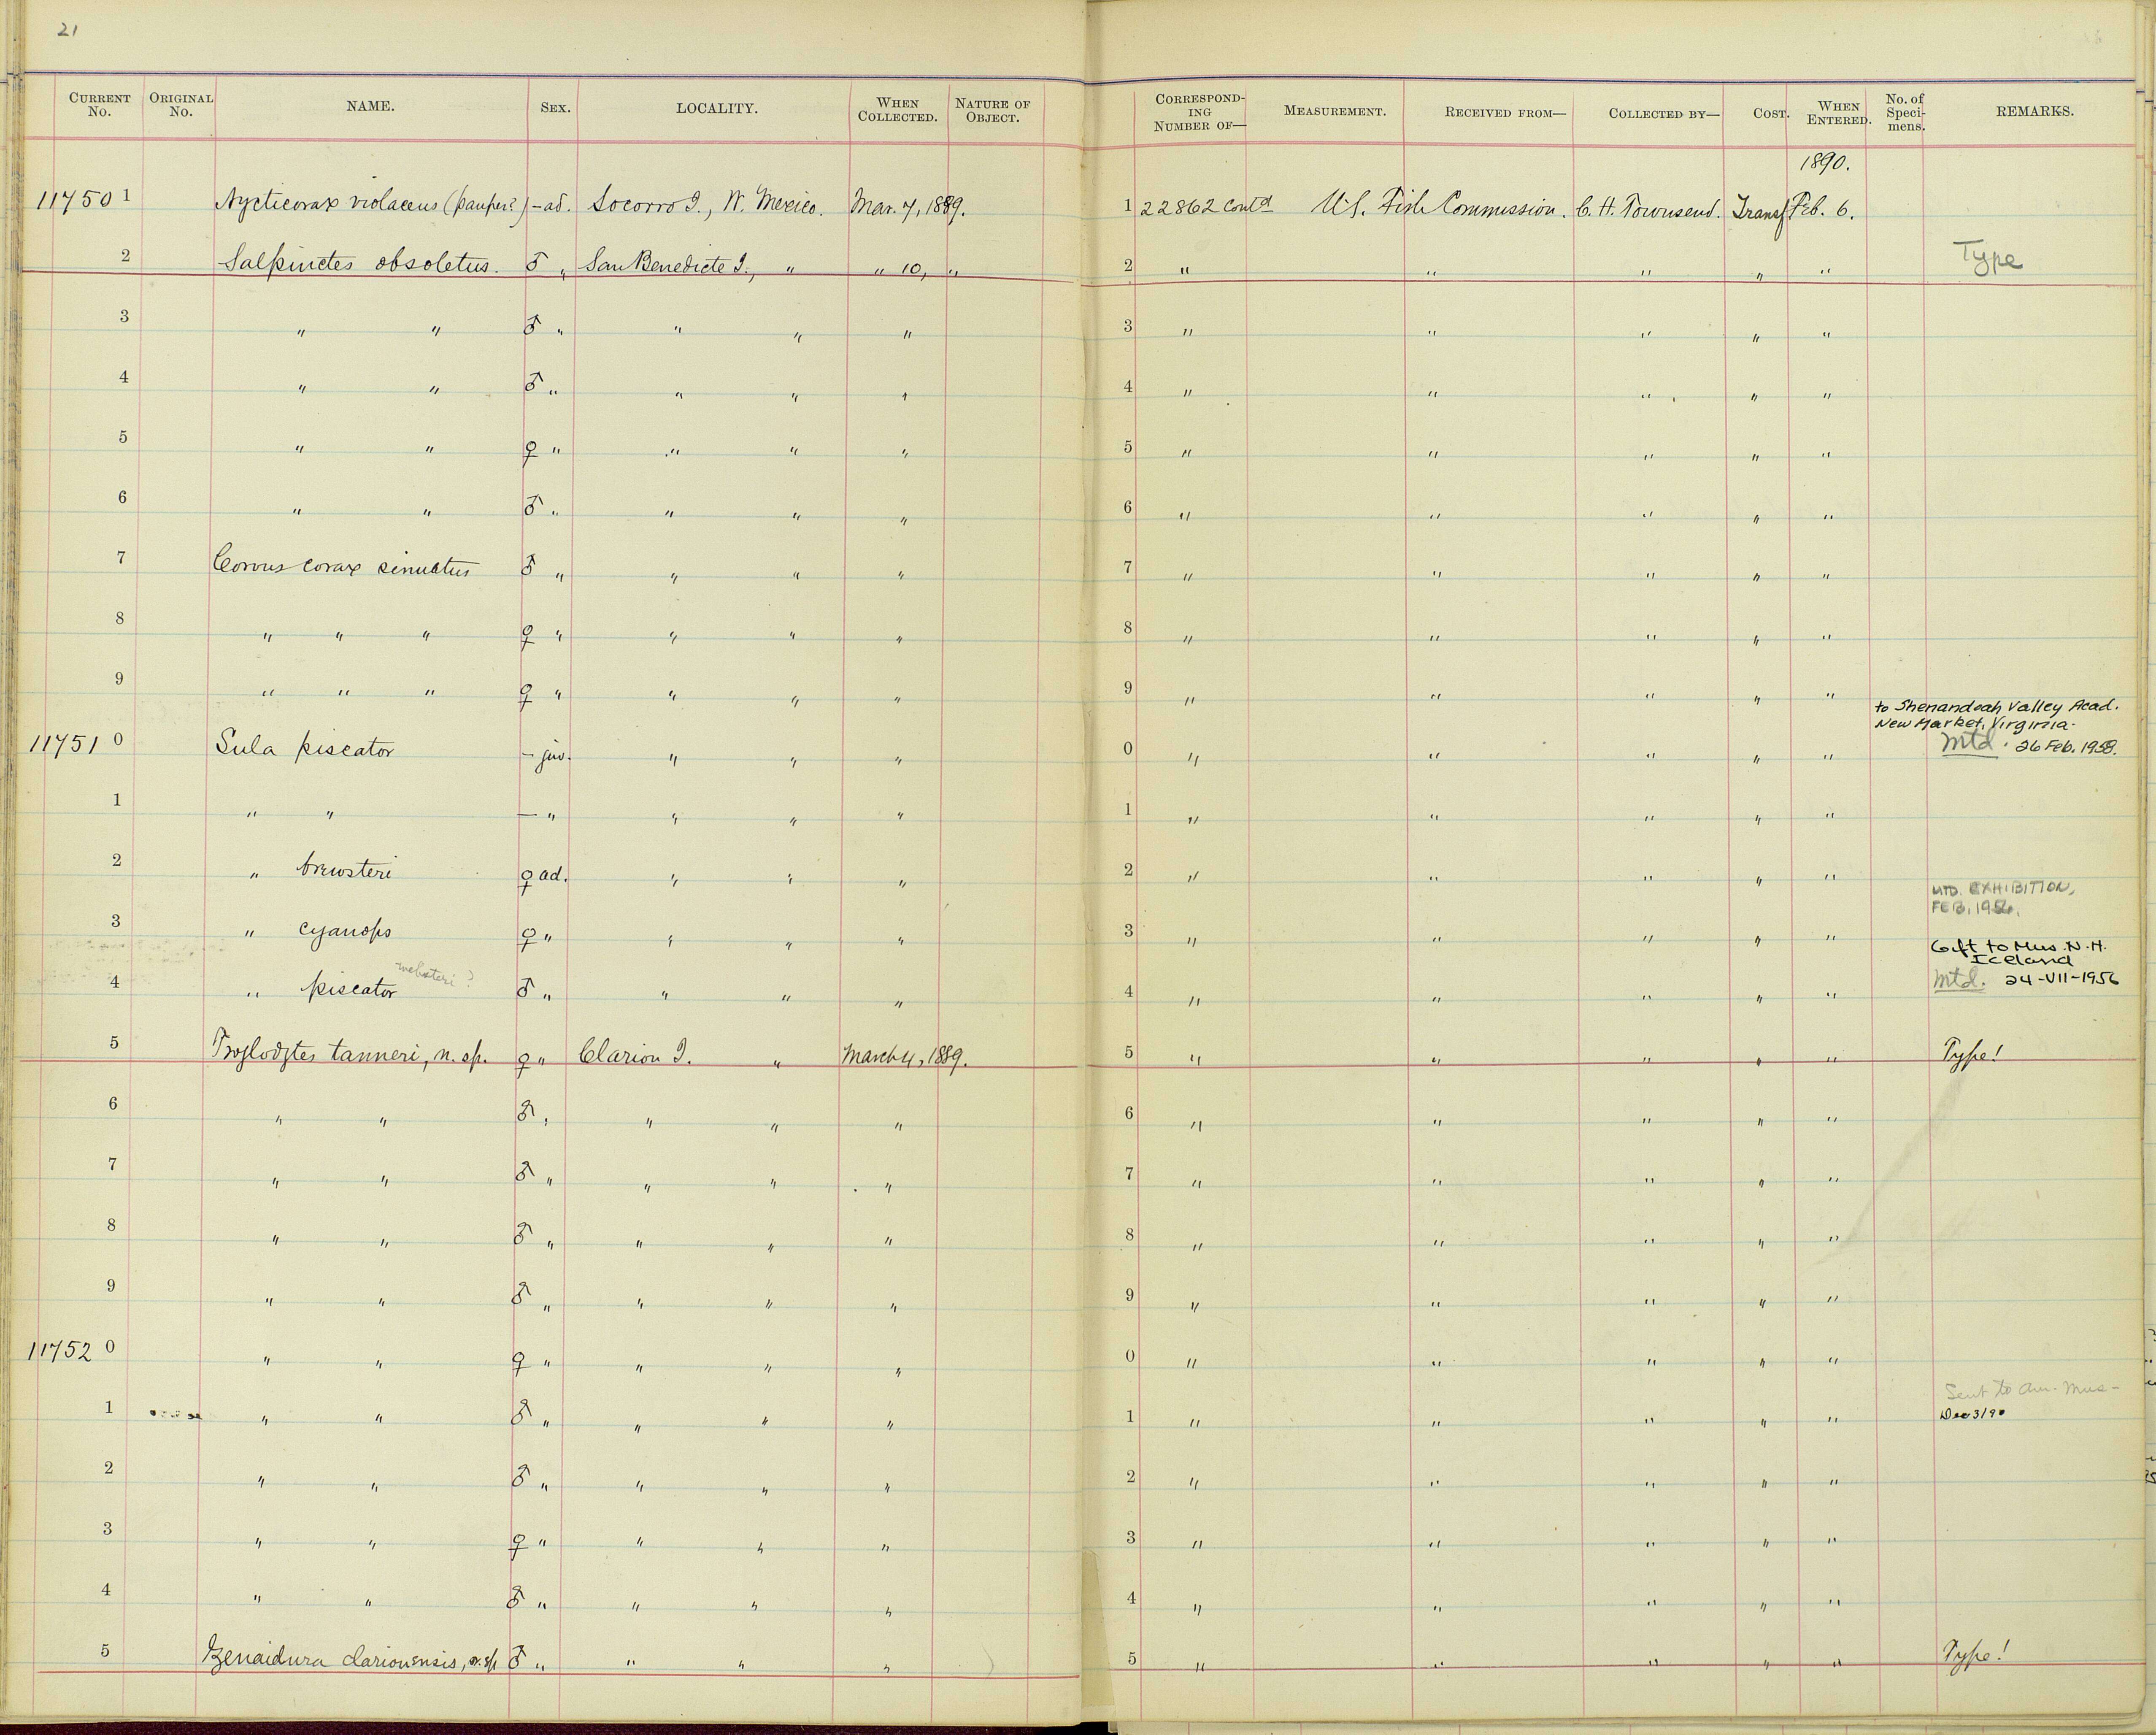 21
CURRENT No. ORIGINAL No. NAME. SEX. LOCALITY. WHEN COLLECTED. NATURE OF OBJECT. CORRESPONDING NUMBER OF— MEASUREMENT. RECEIVED FROM— COLLECTED BY— COST. WHEN ENTERED. No. of Specimens. REMARKS.
1890.
11750 1 Nycticorax violaceus (pauper?) – ad. Socorro I., W. Mexico. Mar. 7, 1889. 1 22862 Contd U.S. Fish Commission. C. H. Townsend. Transf Feb. 6.
2 Salpinctes obsoletus. ♂ " San Benedicte I., " " 10, " 2 " " " " " Type
3 " " ♂ " " " " 3 " " " " "
4 " " ♂ " " " " 4 " " " " "
5 " " ♀ " " " " 5 " " " " "
6 " " ♂ " " " " 6 " " " " "
7 Corvus corax sinuatus ♂ " " " " 7 " " " " "
8 " " " ♀ " " " " 8 " " " " "
9 " " " ♀ " " " " 9 " " " " "
to Shenandoah Valley Acad.
New Market, Virginia.
11751 0 Sula piscator – juv. " " " 0 " " " " " Mtd. 26 Feb. 1958.
1 " " – " " " " 1 " " " " "
2 " brewsteri ♀ ad. " " " 2 " " " " "
MTD. EXHIBITION,
FEB. 1956.
3 " cyanops ♀ " " " " 3 " " " " "
Gift to Mus. N. H.
Iceland
websteri ?
4 " piscator ♂ " " " " 4 " " " " " Mtd. 24-VII-1956
5 Troglodytes tanneri, n. sp. ♀ " Clarion I. " March 4, 1889. 5 " " " " " Type!
6 " " ♂ " " " " 6 " " " " "
7 " " ♂ " " " " 7 " " " " "
8 " " ♂ " " " " 8 " " " " "
9 " " ♂ " " " " 9 " " " " "
11752 0 " " ♀ " " " " 0 " " " " "
Sent to Am. Mus –
1 " " ♂ " " " " 1 " " " " " Dec 3/90
2 " " ♂ " " " " 2 " " " " "
3 " " ♀ " " " " 3 " " " " "
4 " " ♂ " " " " 4 " " " " "
5 Zenaidura clarionensis, n. sp ♂ " " " " 5 " " " " " Type!